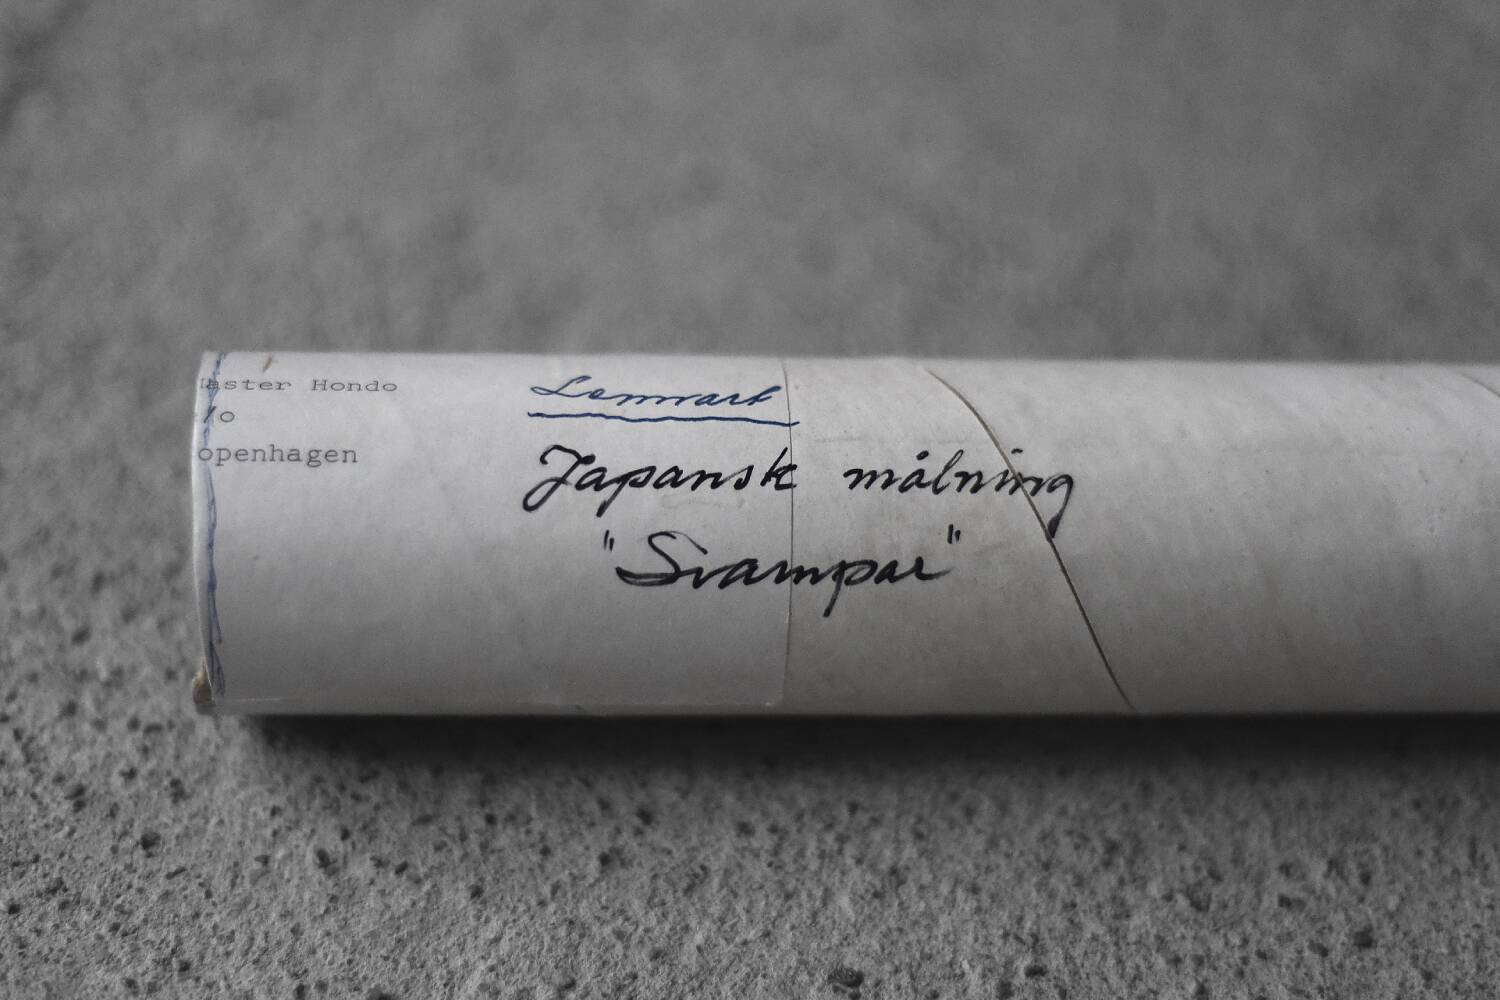 aster Hondo
/o
openhagen
Lennart
Japansk målning
"Svampar"